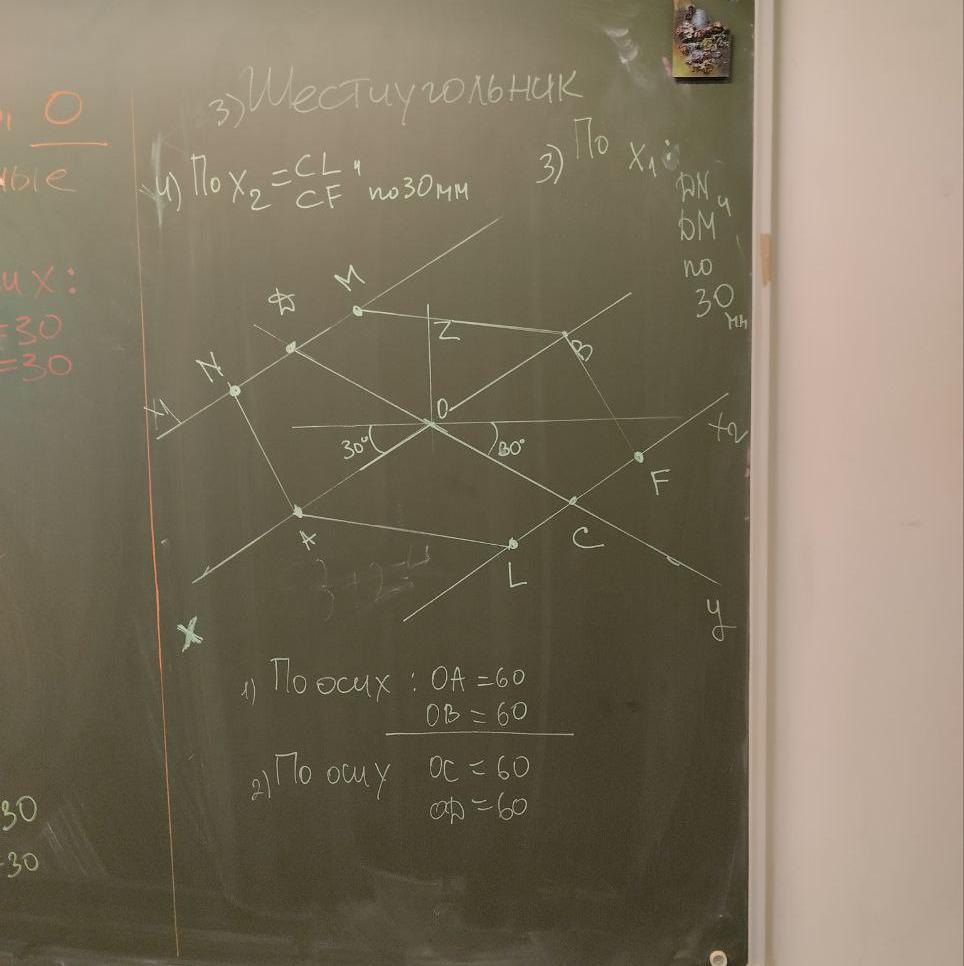 О
ные
их:
=30
=30
30
-30
3) Шестиугольник
4) По X₂ = CL и
CF по 30 мм
3) По X₁:
DN и
DM
по
30
мм
M
D
Z
N
B
X₁
O
X₂
30°
30°
F
A
C
L
X
y
1) По оси х : OA = 60
OB = 60
2) По оси у OC = 60
OD = 60